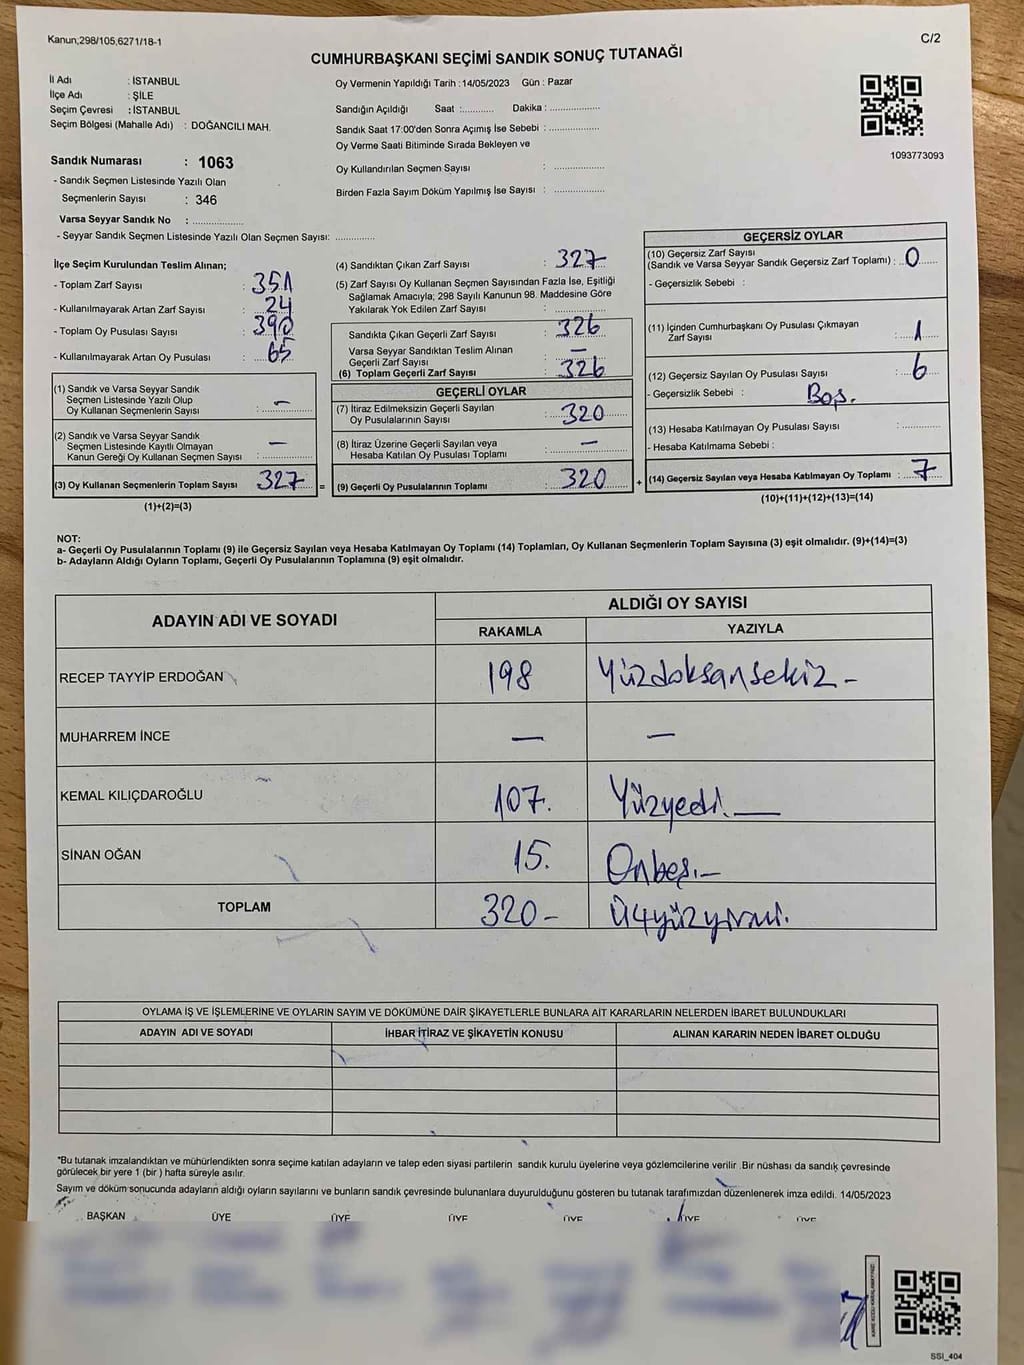 Kanun;298/105,6271/18-1
C/2
CUMHURBAŞKANI SEÇİMİ SANDIK SONUÇ TUTANAĞI
İl Adı : İSTANBUL
İlçe Adı : ŞİLE
Seçim Çevresi : İSTANBUL
Seçim Bölgesi (Mahalle Adı) : DOĞANCILI MAH.
Sandık Numarası : 1063
- Sandık Seçmen Listesinde Yazılı Olan
Seçmenlerin Sayısı : 346
Varsa Seyyar Sandık No : ....................
- Seyyar Sandık Seçmen Listesinde Yazılı Olan Seçmen Sayısı: ...............
Oy Vermenin Yapıldığı Tarih : 14/05/2023 Gün : Pazar
Sandığın Açıldığı Saat :............ Dakika : ...................
Sandık Saat 17:00'den Sonra Açımış İse Sebebi : ...................
Oy Verme Saati Bitiminde Sırada Bekleyen ve
Oy Kullandırılan Seçmen Sayısı : ...................
Birden Fazla Sayım Döküm Yapılmış İse Sayısı : ...................
1093773093
İlçe Seçim Kurulundan Teslim Alınan;
- Toplam Zarf Sayısı : 351
- Kullanılmayarak Artan Zarf Sayısı : 24
- Toplam Oy Pusulası Sayısı : 390
- Kullanılmayarak Artan Oy Pusulası : 65
(1) Sandık ve Varsa Seyyar Sandık
Seçmen Listesinde Yazılı Olup
Oy Kullanan Seçmenlerin Sayısı : –
(2) Sandık ve Varsa Seyyar Sandık
Seçmen Listesinde Kayıtlı Olmayan
Kanun Gereği Oy Kullanan Seçmen Sayısı : –
(3) Oy Kullanan Seçmenlerin Toplam Sayısı : 327 =
(1)+(2)=(3)
(4) Sandıktan Çıkan Zarf Sayısı : 327
(5) Zarf Sayısı Oy Kullanan Seçmen Sayısından Fazla İse, Eşitliği
Sağlamak Amacıyla; 298 Sayılı Kanunun 98. Maddesine Göre
Yakılarak Yok Edilen Zarf Sayısı : ...................
Sandıkta Çıkan Geçerli Zarf Sayısı : 326
Varsa Seyyar Sandıktan Teslim Alınan
Geçerli Zarf Sayısı : –
(6) Toplam Geçerli Zarf Sayısı : 326
GEÇERLİ OYLAR
(7) İtiraz Edilmeksizin Geçerli Sayılan
Oy Pusulalarının Sayısı : 320
(8) İtiraz Üzerine Geçerli Sayılan veya
Hesaba Katılan Oy Pusulası Toplamı : –
(9) Geçerli Oy Pusulalarının Toplamı : 320 +
GEÇERSİZ OYLAR
(10) Geçersiz Zarf Sayısı
(Sandık ve Varsa Seyyar Sandık Geçersiz Zarf Toplamı) : 0
- Geçersizlik Sebebi :
(11) İçinden Cumhurbaşkanı Oy Pusulası Çıkmayan
Zarf Sayısı : 1
(12) Geçersiz Sayılan Oy Pusulası Sayısı : 6
- Geçersizlik Sebebi : Boş.
(13) Hesaba Katılmayan Oy Pusulası Sayısı : ...............
- Hesaba Katılmama Sebebi :
(14) Geçersiz Sayılan veya Hesaba Katılmayan Oy Toplamı : 7
(10)+(11)+(12)+(13)=(14)
NOT:
a- Geçerli Oy Pusulalarının Toplamı (9) ile Geçersiz Sayılan veya Hesaba Katılmayan Oy Toplamı (14) Toplamları, Oy Kullanan Seçmenlerin Toplam Sayısına (3) eşit olmalıdır. (9)+(14)=(3)
b- Adayların Aldığı Oyların Toplamı, Geçerli Oy Pusulalarının Toplamına (9) eşit olmalıdır.
ADAYIN ADI VE SOYADI
ALDIĞI OY SAYISI
RAKAMLA YAZIYLA
RECEP TAYYİP ERDOĞAN 198 Yüzdoksansekiz –
MUHARREM İNCE – –
KEMAL KILIÇDAROĞLU 107. Yüzyedi. —
SİNAN OĞAN 15. Onbeş. –
TOPLAM 320 – üçyüzyirmi.
OYLAMA İŞ VE İŞLEMLERİNE VE OYLARIN SAYIM VE DÖKÜMÜNE DAİR ŞİKAYETLERLE BUNLARA AİT KARARLARIN NELERDEN İBARET BULUNDUKLARI
ADAYIN ADI VE SOYADI İHBAR İTİRAZ VE ŞİKAYETİN KONUSU ALINAN KARARIN NEDEN İBARET OLDUĞU
*Bu tutanak imzalandıktan ve mühürlendikten sonra seçime katılan adayların ve talep eden siyasi partilerin sandık kurulu üyelerine veya gözlemcilerine verilir .Bir nüshası da sandık çevresinde
görülecek bir yere 1 (bir ) hafta süreyle asılır.
Sayım ve döküm sonucunda adayların aldığı oyların sayılarını ve bunların sandık çevresinde bulunanlara duyurulduğunu gösteren bu tutanak tarafımızdan düzenlenerek imza edildi. 14/05/2023
BAŞKAN ÜYE ÜYE ÜYE ÜYE ÜYE ÜYE
SSI_404